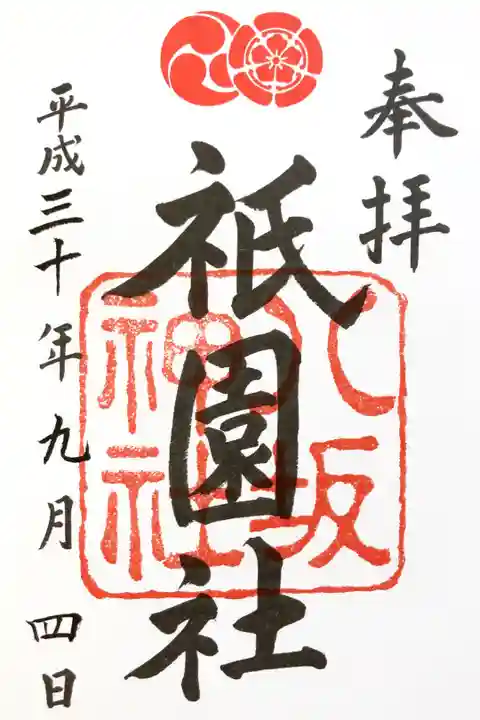 奉拝
八坂
神社
祇園社
平成三十年九月四日